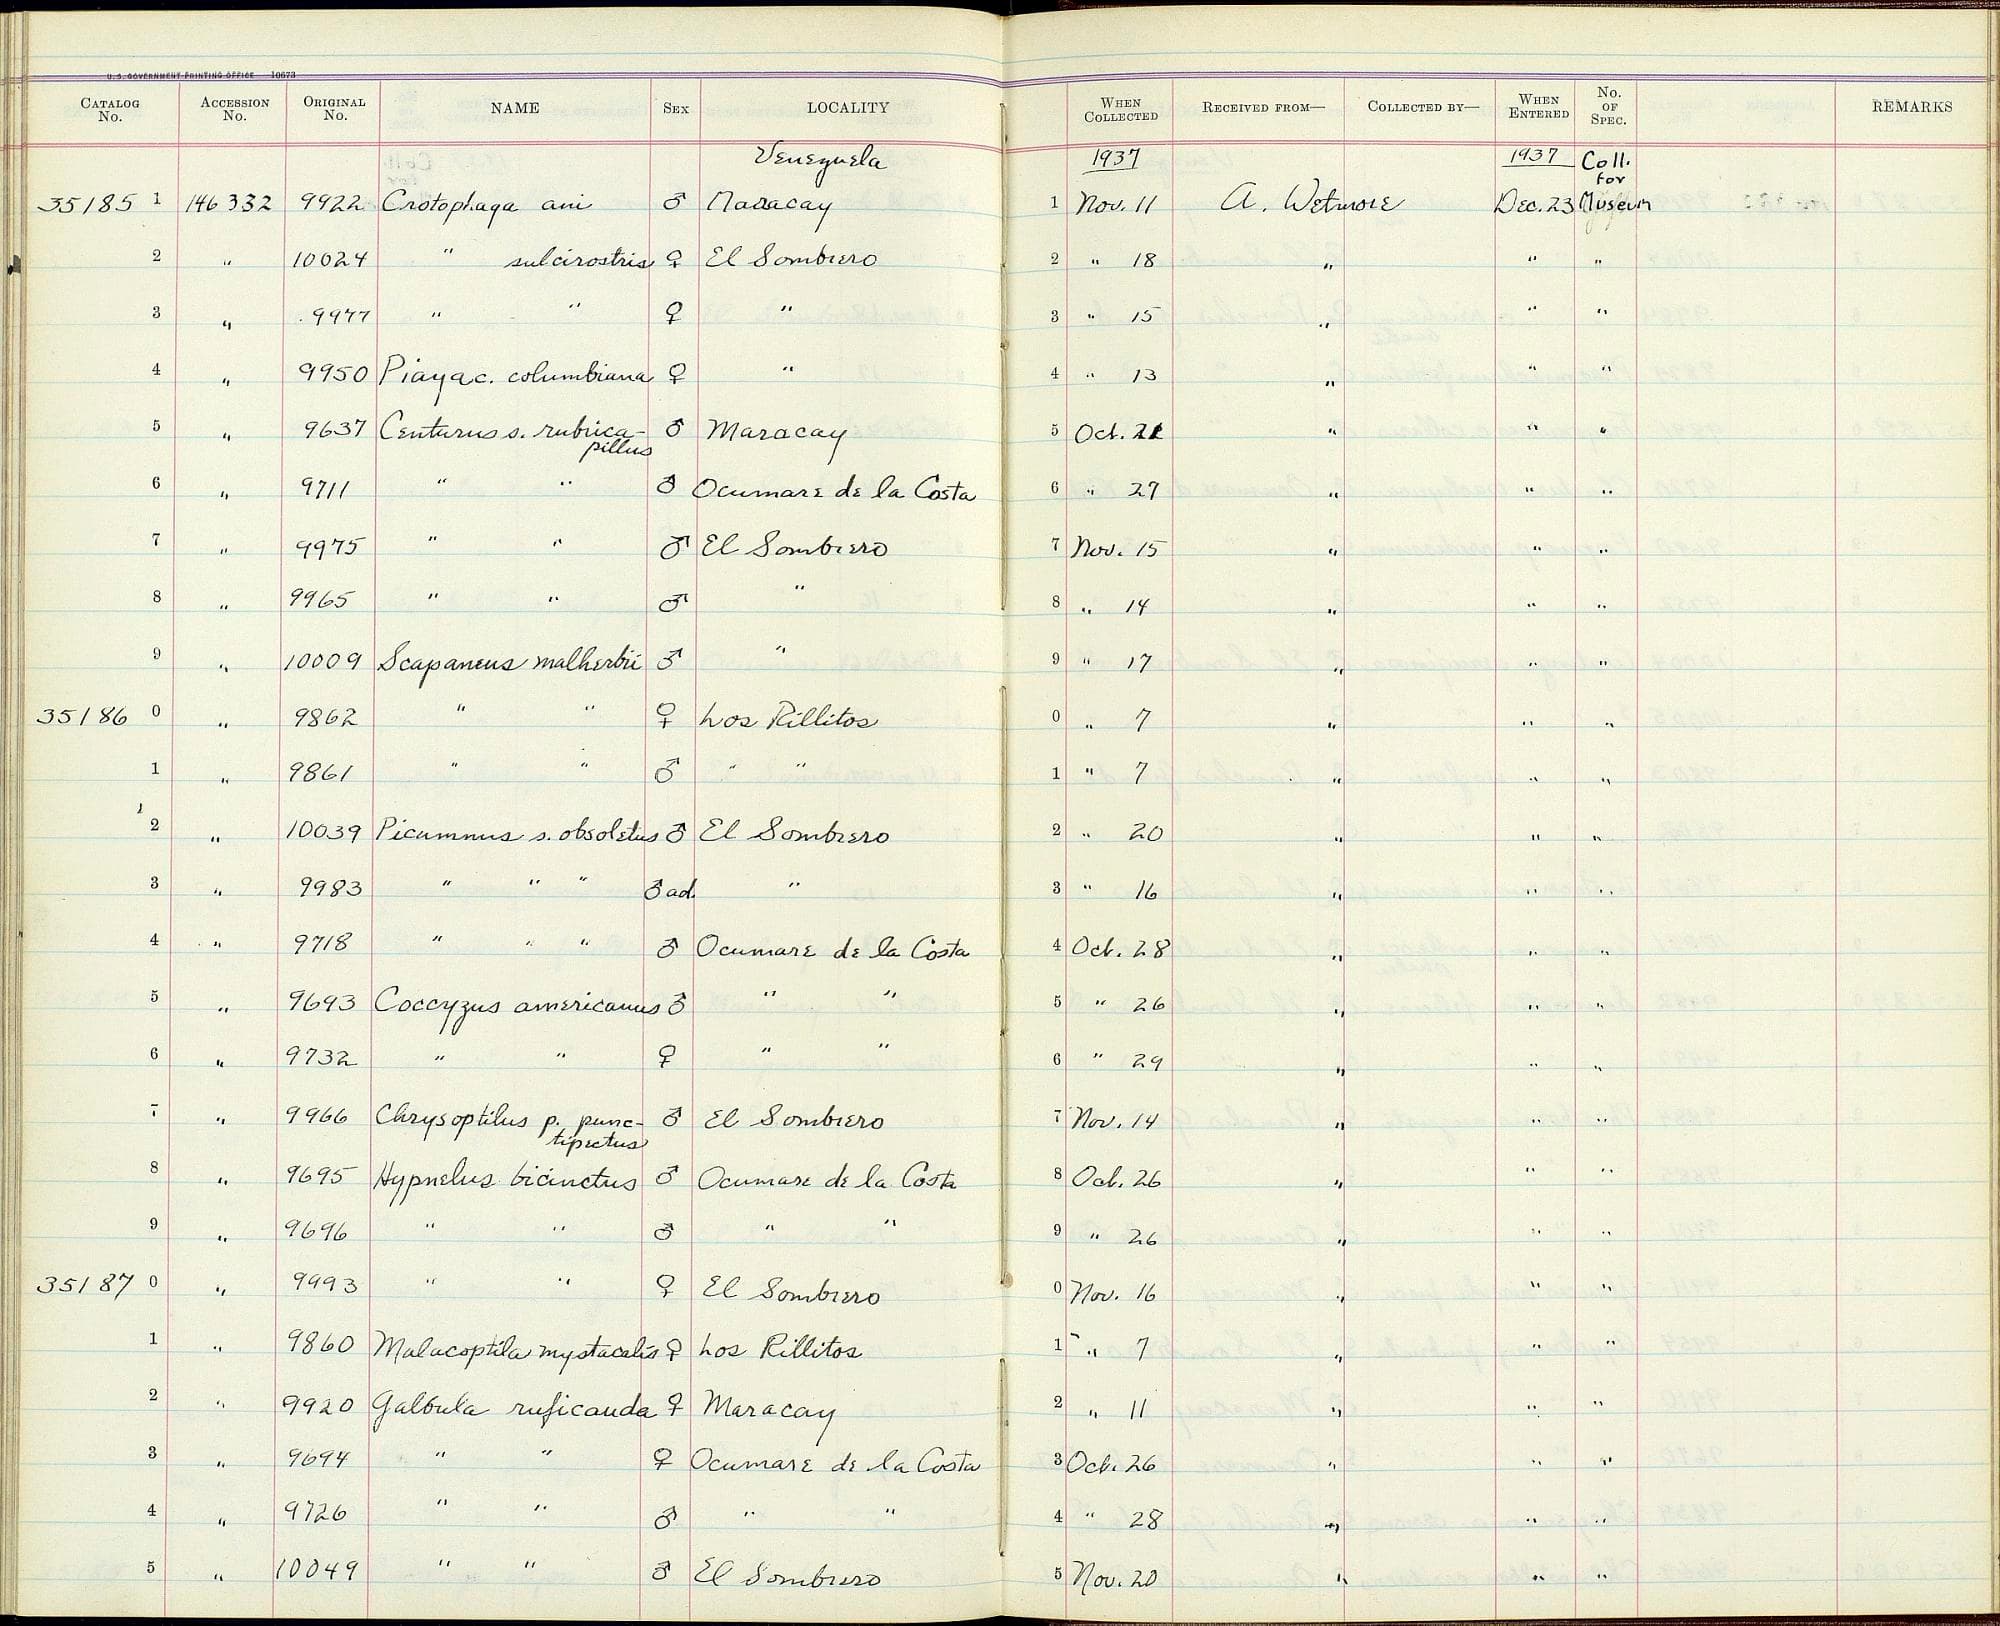 U.S. GOVERNMENT PRINTING OFFICE 10673
CATALOG No. ACCESSION No. ORIGINAL No. NAME SEX LOCALITY WHEN COLLECTED RECEIVED FROM— COLLECTED BY— WHEN ENTERED No. OF SPEC. REMARKS
Venezuela 1937 1937 Coll. for
35185 1 146332 9922 Crotophaga ani ♂ Maracay 1 Nov. 11 A. Wetmore Dec. 23 Museum
2 " 10024 " sulcirostris ♀ El Sombrero 2 " 18 " " "
3 " 9977 " " ♀ " 3 " 15 " " "
4 " 9950 Piaya c. columbiana ♀ " 4 " 13 " " "
5 " 9637 Centurus s. rubrica- ♂ Maracay 5 Oct. 21 " " "
pillus
6 " 9711 " " ♂ Ocumare de la Costa 6 " 27 " " "
7 " 9975 " " ♂ El Sombrero 7 Nov. 15 " " "
8 " 9965 " " ♂ " 8 " 14 " " "
9 " 10009 Scapaneus malherbii ♂ " 9 " 17 " " "
35186 0 " 9862 " " ♀ Los Rillitos 0 " 7 " " "
1 " 9861 " " ♂ " " 1 " 7 " " "
2 " 10039 Picumnus s. obsoletus ♂ El Sombrero 2 " 20 " " "
3 " 9983 " " " ♂ ad. " 3 " 16 " " "
4 " 9718 " " " ♂ Ocumare de la Costa 4 Oct. 28 " " "
5 " 9693 Coccyzus americanus ♂ " " 5 " 26 " " "
6 " 9732 " " ♀ " " 6 " 29 " " "
7 " 9966 Chrysoptilus p. punc- ♂ El Sombrero 7 Nov. 14 " " "
tipectus
8 " 9695 Hypnelus bicinctus ♂ Ocumare de la Costa 8 Oct. 26 " " "
9 " 9696 " " ♂ " " 9 " 26 " " "
35187 0 " 9993 " " ♀ El Sombrero 0 Nov. 16 " " "
1 " 9860 Malacoptila mystacalis ♀ Los Rillitos 1 " 7 " " "
2 " 9920 Galbula ruficauda ♀ Maracay 2 " 11 " " "
3 " 9694 " " ♀ Ocumare de la Costa 3 Oct. 26 " " "
4 " 9726 " " ♂ " " 4 " 28 " " "
5 " 10049 " " ♂ El Sombrero 5 Nov. 20 " " "